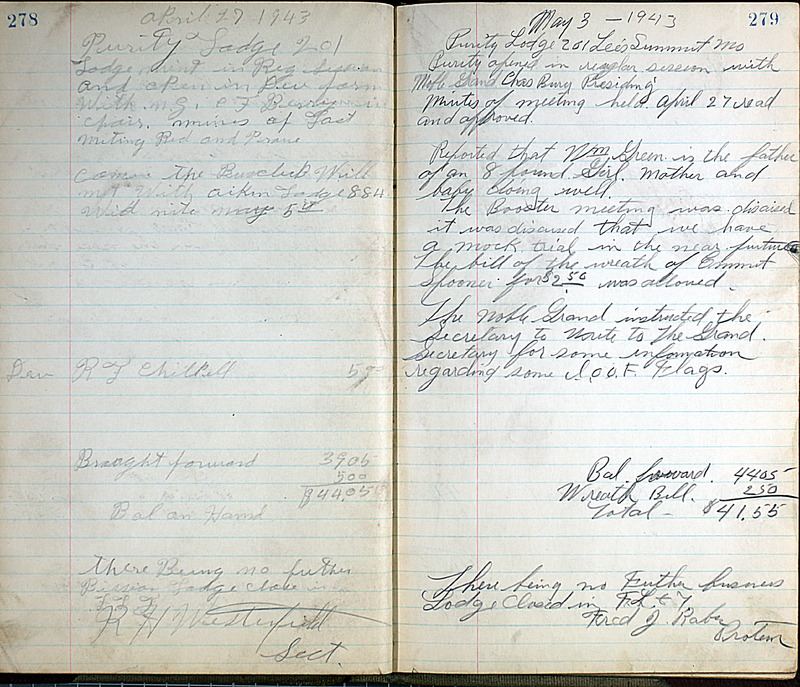 278
April 27 1943
Purity Lodge 201
Lodge ment in Reg session
and open in Due form
With N.G. C F Berry in
chair. minues of Last
miting Red and Prove
come the Will
met With aikin Lodge 884
Wid nite may 5th
R F Chilkell 5
Braught forward 3905
500
$44.05
Bal on Hand
there Being no futher
Bissian Lodge close in
F L T
R H Westerfield
Sect.
279
May 3 - 1943
Purity Lodge 201 Lee's Summit Mo
Purity opened in regular session with
Noble Grand Chas Bury Presiding
Minutes of meeting held April 27 read
and approved.
Reported that Wm Green is the father
of an 8 pound Girl. Mother and
baby doing well.
The Booster meeting was discused
it was discused that we have
a mock trial in the near future
The bill of the wreath of Emmit
Spooner for $2.50 was allowed.
The Noble Grand instructed the
Secretary to write to the Grand.
Secretary for some infomation
regarding some I.O.O.F. Flags.
Bal. foward. 4405
Wreath Bill. 250
Total - $41.55
There being no Futher business
Lodge Closed in F. L. & T
Fred J. Rabe
Protem